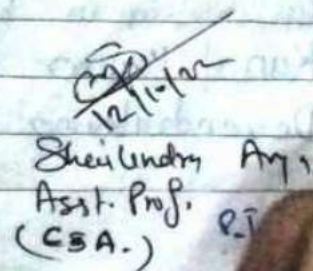 12/10/22
Shailendra Ary,
Asst. Prof.
(CSA.)
P-I